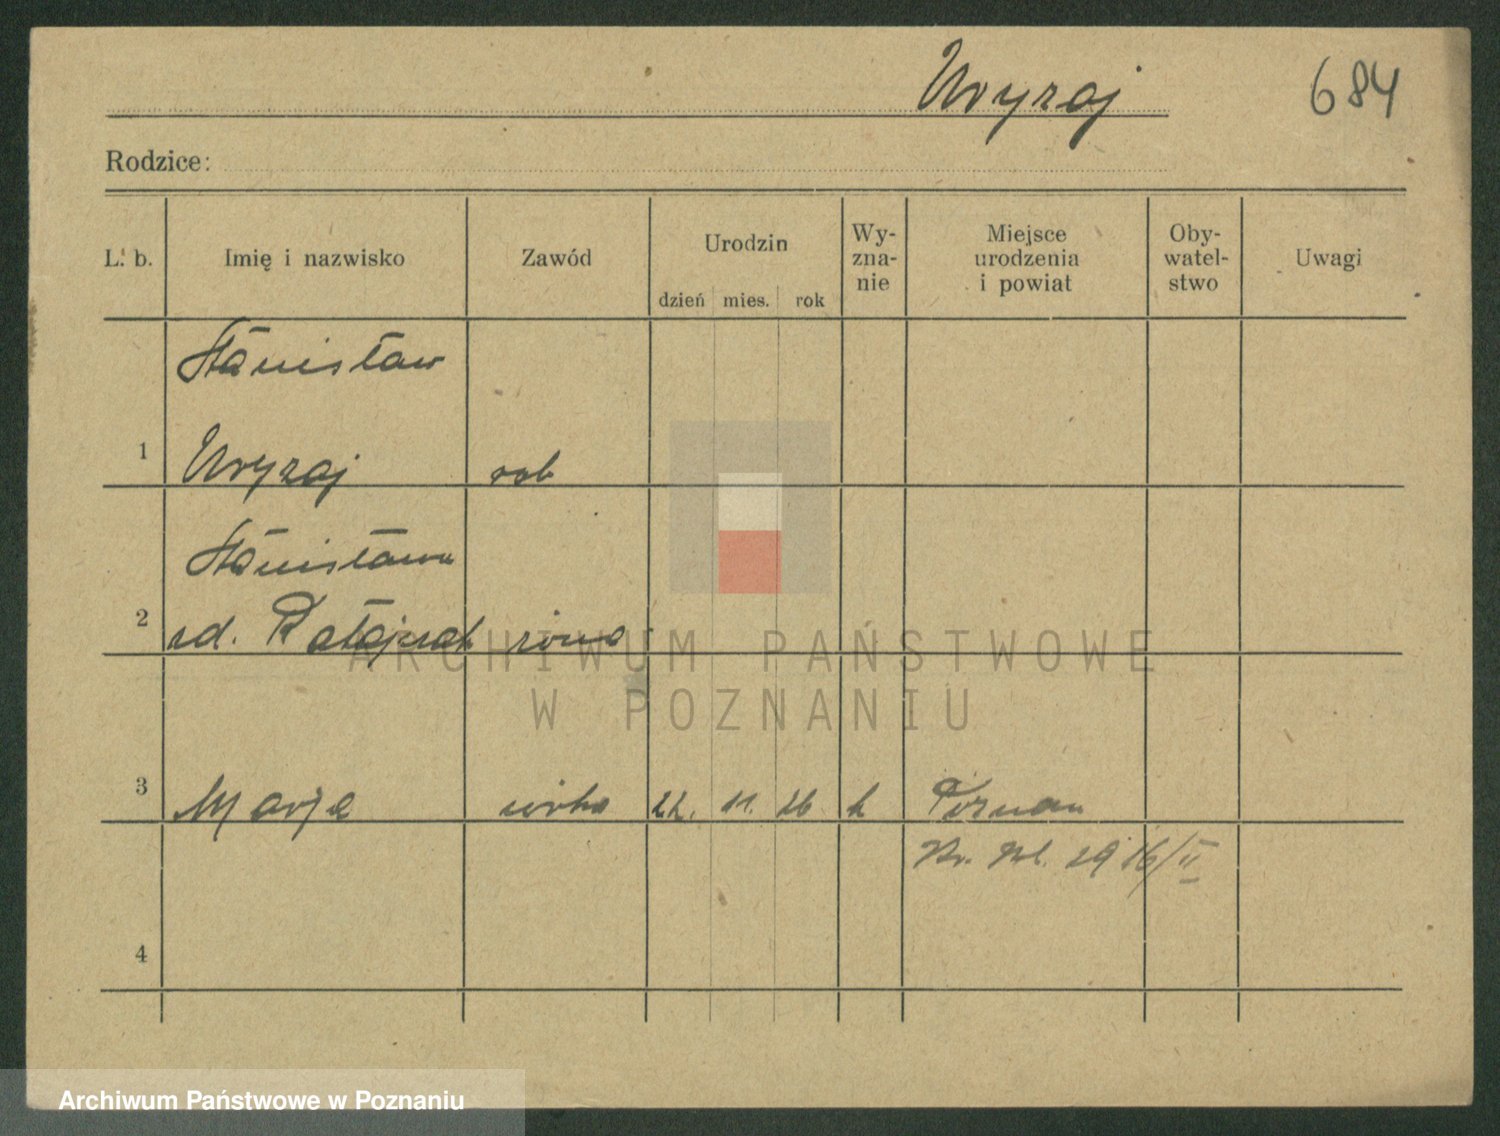 Wyzaj 684
Rodzice:
L. b. Imię i nazwisko Zawód Urodzin Wy-zna-nie Miejsce urodzenia i powiat Oby-watel-stwo Uwagi
dzień mies. rok
Stanisław
1 Wyzaj rob
Stanisława
2 zd. Ratajczak żona
3 Marja córka 22. 11. 26 k Poznan
29 16/II
4
ARCHIWUM PAŃSTWOWE
W POZNANIU
Archiwum Państwowe w Poznaniu